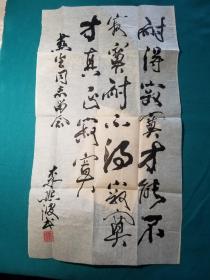 耐得寂寞才能不
寂寞耐不得寂寞
才真正寂寞
燕生同志留念
李燕俊书